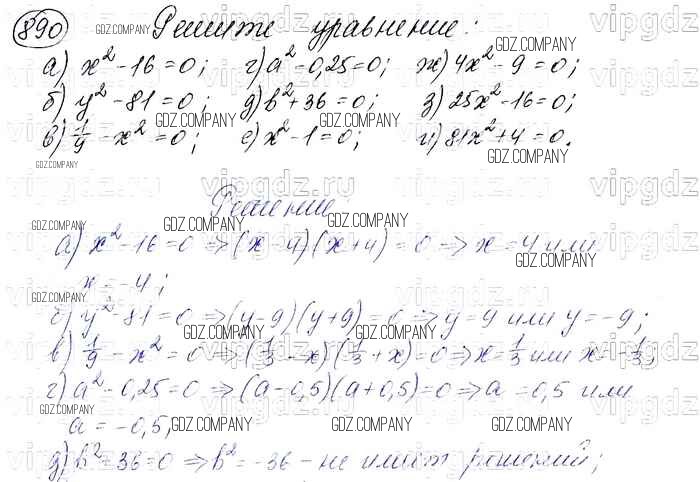 890 Решите уравнение:
а) x² - 16 = 0; г) a² - 0,25 = 0; ж) 4x² - 9 = 0;
б) y² - 81 = 0; д) b² + 36 = 0; з) 25x² - 16 = 0;
в) 1/9 - x² = 0; е) x² - 1 = 0; и) 81x² + 4 = 0.
Решение
а) x² - 16 = 0 ⇒ (x - 4)(x + 4) = 0 ⇒ x = 4 или
x = -4;
б) y² - 81 = 0 ⇒ (y - 9)(y + 9) = 0 ⇒ y = 9 или y = -9;
в) 1/9 - x² = 0 ⇒ (1/3 - x)(1/3 + x) = 0 ⇒ x = 1/3 или x = -1/3;
г) a² - 0,25 = 0 ⇒ (a - 0,5)(a + 0,5) = 0 ⇒ a = 0,5 или
a = -0,5;
д) b² + 36 = 0 ⇒ b² = -36 - не имеет решений;
GDZ.COMPANY
vipgdz.ru